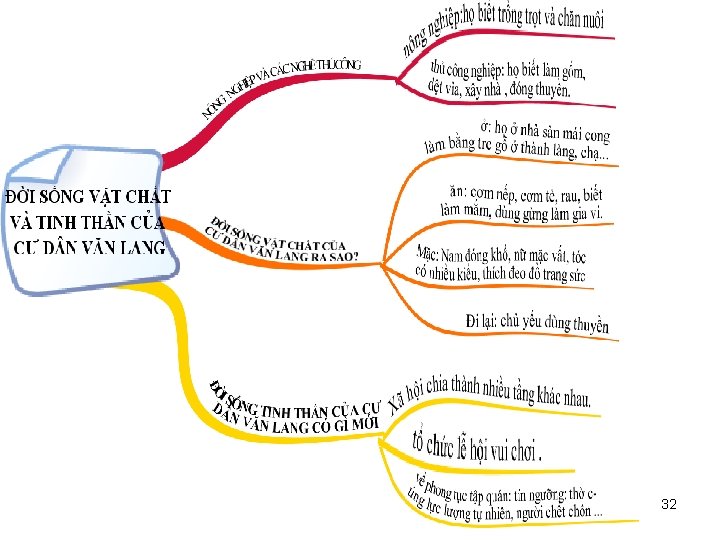 ĐỜI SỐNG VẬT CHẤT
VÀ TINH THẦN CỦA
CƯ DÂN VĂN LANG
NÔNG NGHIỆP VÀ CÁC NGHỀ THỦ CÔNG
nông nghiệp:họ biết trồng trọt và chăn nuôi
thủ công nghiệp: họ biết làm gốm,
dệt vỉa, xây nhà , đóng thuyền.
ĐỜI SỐNG VẬT CHẤT CỦA
CƯ DÂN VĂN LANG RA SAO?
ở: họ ở nhà sàn mái cong
làm bằng tre gỗ ở thành làng, chạ...
ăn: cơm nếp, cơm tẻ, rau, biết
làm mắm, dùng gừng làm gia vị.
Mặc: Nam đóng khố, nữ mặc vất, tóc
có nhiều kiểu, thích đeo đồ trang sức
Đi lại: chủ yếu dùng thuyền
ĐỜI SỐNG TINH THẦN CỦA CƯ
DÂN VĂN LANG CÓ GÌ MỚI
Xã hội chia thành nhiều tầng khác nhau.
tổ chức lễ hội vui chơi .
về phong tục tập quán: tín ngưỡng: thờ c-
úng lực lượng tự nhiên, người chết chôn ...
32